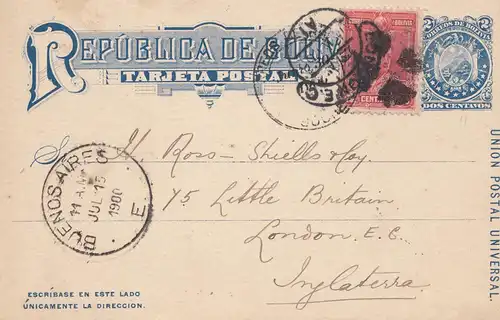 REPÚBLICA DE BOLIVIA
TARJETA POSTAL
BOLIVIA
CENT
2 CORREOS DE BOLIVIA 2
DOS CENTAVOS
S H. Ross-Shiells & Coy.
75 Little Britain
London. E.C.
Inglaterra.
BUENOS AIRES
11 AM
JUL 15
1900
E.
UNION POSTAL UNIVERSAL.
ESCRÍBASE EN ESTE LADO
ÚNICAMENTE LA DIRECCION.